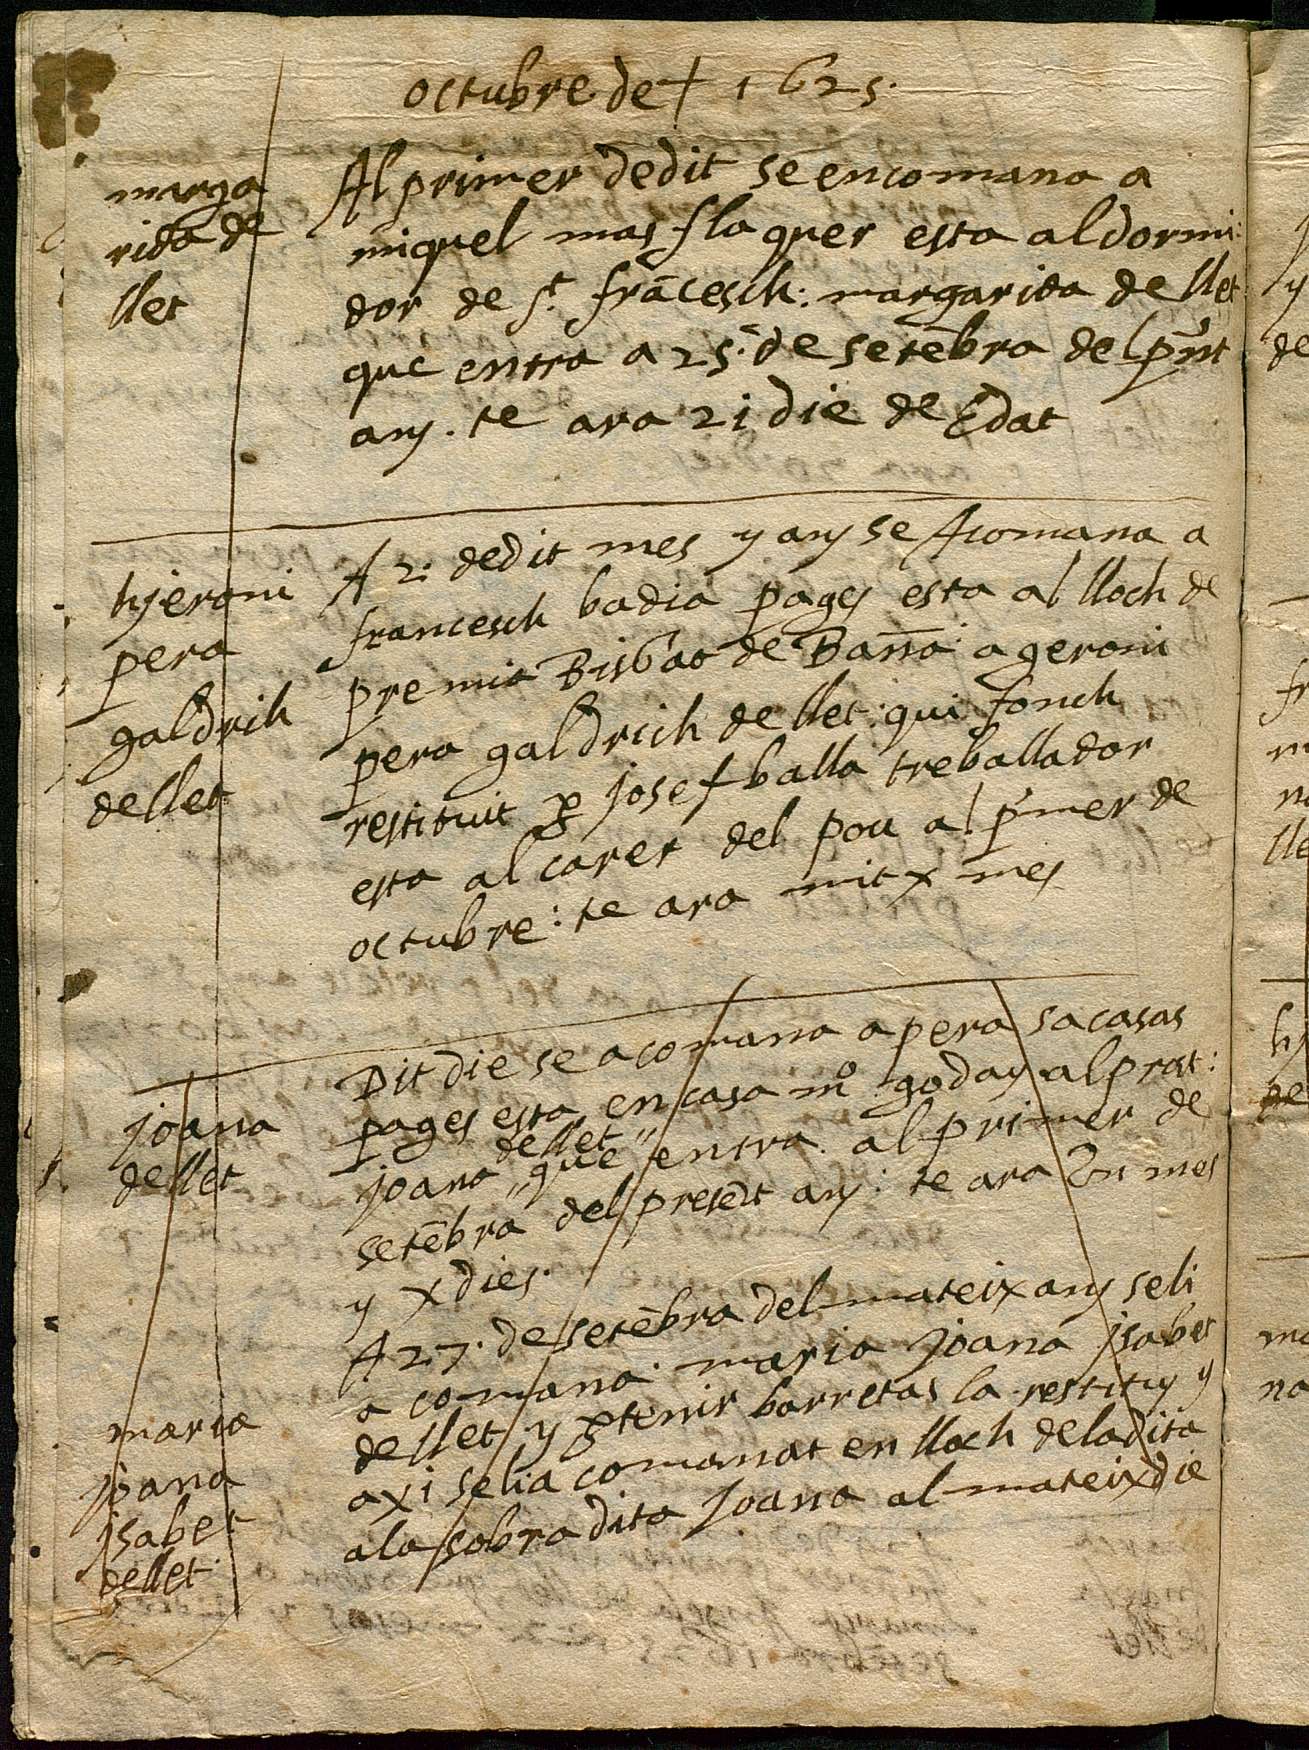 octubre de + 1625.
marga
rida de
llet
Al primer dedit se encomana a
miquel mas flaquer esta al dormi:
dor de st. frācesch: margarida de llet
que entra a 25. de setēbra del pn̄t
any. te ara 21 die de Edat
hjeroni
pera
galdrich
de llet
A 2: dedit mes y any se Acomana a
francesch badia pages esta al lloch de
premia Bisbat de Barna a geroni
pera galdrich de llet: qui fonch
restituit per josef balla treballador
esta al carer del pou al pimer de
octubre: te ara mitx mes
joana
de llet
Dit die se acomana a pera sacasas
pages esta en casa mo goday al prat:
de llet
joana " que " entra al primer de
setēbra del presēt any: te ara Un mes
y x dies.
maria
joana
jsabet
de llet.
A 27. de setēbra del mateix any se li
acomana maria joana jsabet
de llet y per tenir barretas la restituy y
axi se lia comanat en lloch de la dita
a la sobra dita Joana al mateix die